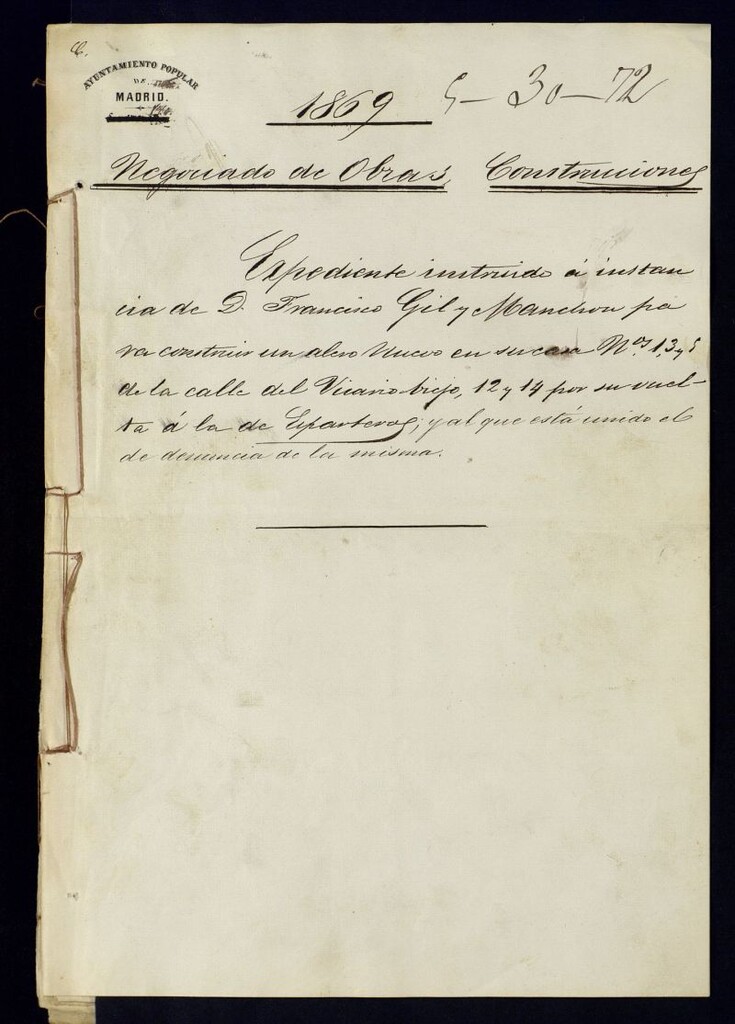 C.
AYUNTAMIENTO POPULAR
DE
MADRID.
1869 5-30-72
Negociado de Obras Construcciones
Expediente instruido á instan
cia de D. Francisco Gil y Manchon pa
ra construir un alero nuevo en su casa Nos. 1, 3 y 5
de la calle del Vicario viejo, 12 y 14 por su vuel-
ta á la de Esparteros; y al que está unido el
de denuncia de la misma.